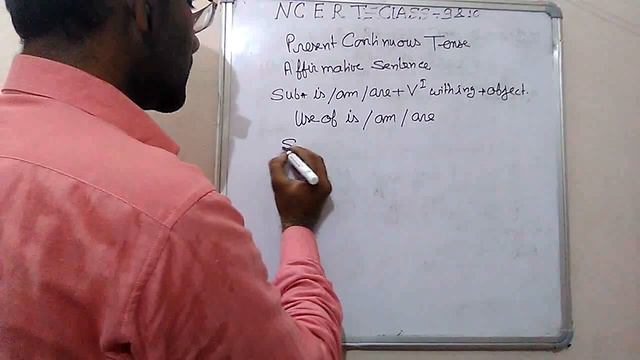 NCERT-CLASS-9&10
Present Continuous Tense
Affirmative Sentence
Sub+ is/am/are+V^I with ing+object.
Use of is/am/are
S